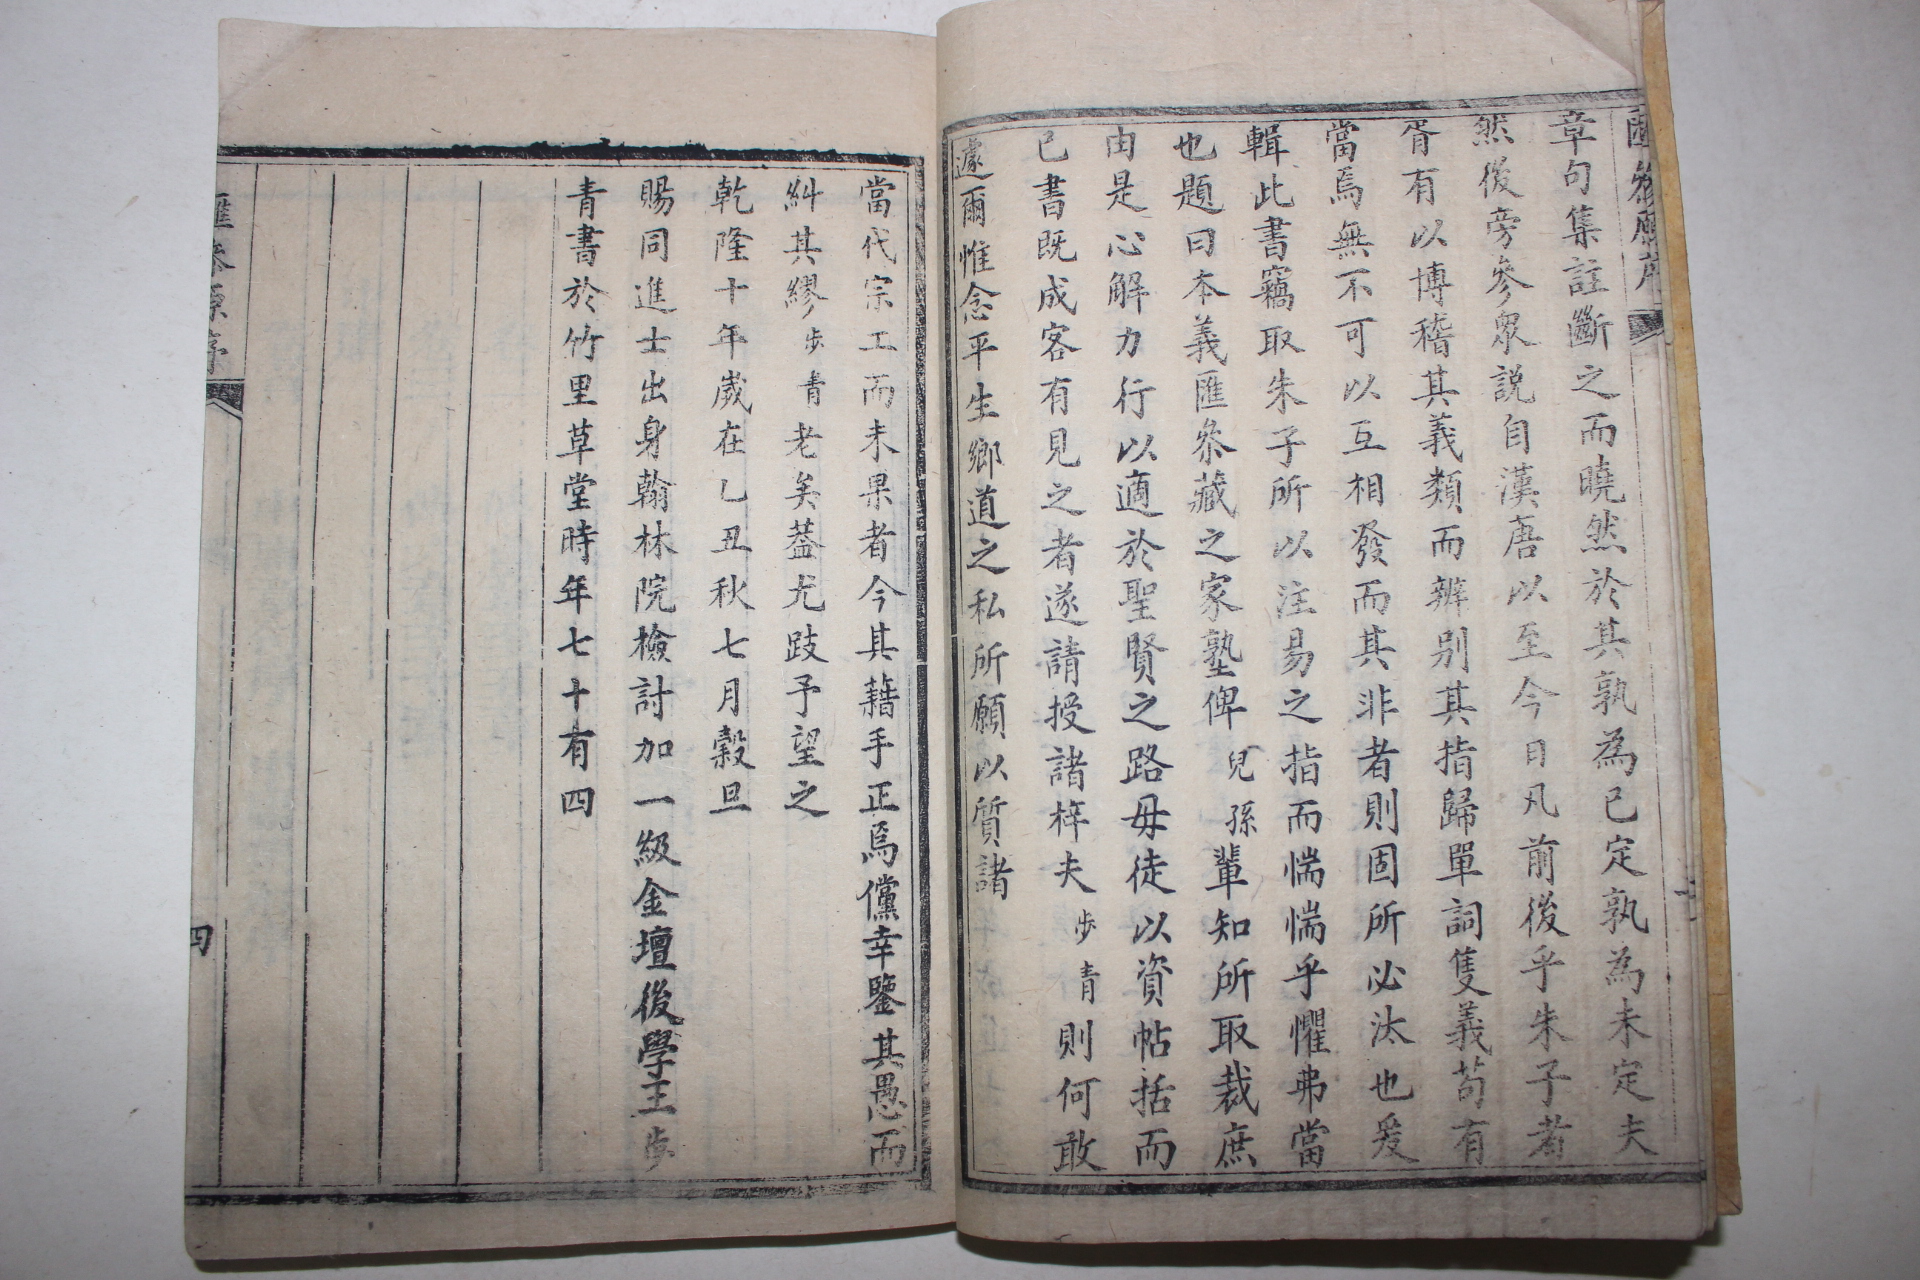 章句集註斷之而曉然於其孰為已定孰為未定夫
然後旁參衆説自漢唐以至今日凡前後乎朱子者
胥有以博稽其義類而辨别其指歸單詞隻義苟有
當焉無不可以互相發而其非者則固所必汰也爰
輯此書竊取朱子所以注易之指而惴惴乎懼弗當
也題曰本義匯叅藏之家塾俾兒孫輩知所取裁庶
由是心解力行以適於聖賢之路毋徒以資帖括而
已書既成客有見之者遂請授諸梓夫步青則何敢
遽爾惟念平生鄉道之私所願以質諸
當代宗工而未果者今其藉手正焉儻幸鑒其愚而
糾其繆步青老矣葢尤跂予望之
乾隆十年歲在乙丑秋七月穀旦
賜同進士出身翰林院檢討加一級金壇後學王步
青書於竹里草堂時年七十有四
四